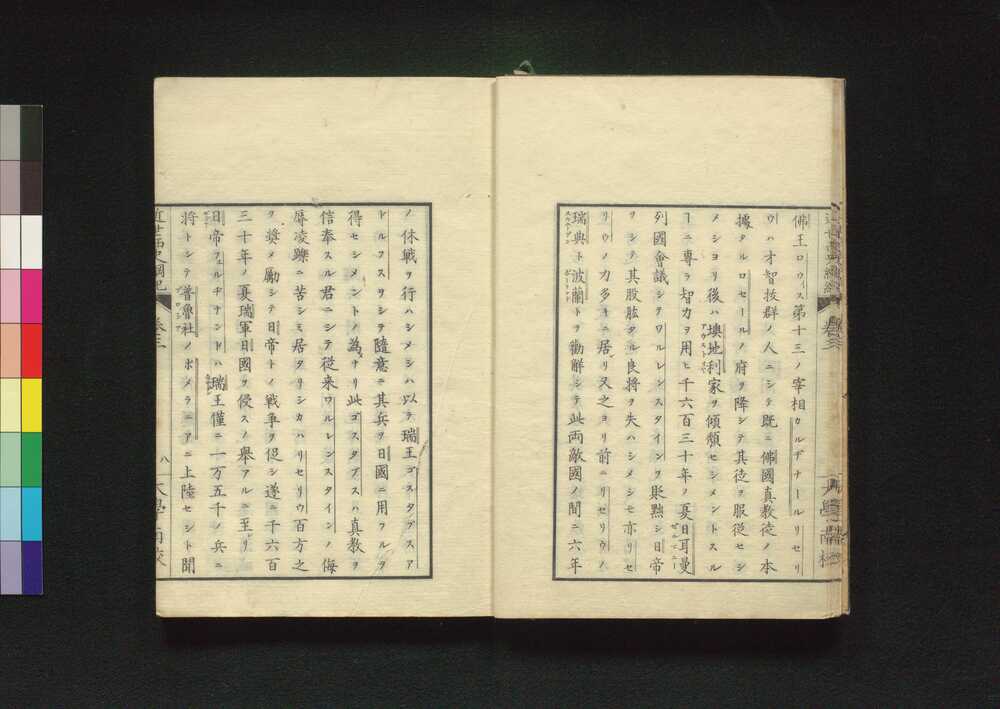 佛王ロウィス第十三ノ宰相カルヂナールリセリ
ウハ才智抜群ノ人ニシテ既ニ佛國真教徒ノ本
據タルロセールノ府ヲ降シテ其徒ヲ服従セシ
メシヨリ後ハ墺地利家ヲ傾頽セシメントスル
ーニ専ラ智力ヲ用ヒ千六百三十年ノ夏日耳曼
列國會議シテワルレンスタインヲ貶黜シ日帝
ヲシテ其股肱タル良将ヲ失ハシメシモ亦リセ
リウノ力多キニ居リ又之ヨリ前ニリセリウノ
瑞典ト波蘭トヲ勸解シテ此両敵國ノ間ニ六年
ノ休戦ヲ行ハシメシハ以テ瑞王ゴスタプスア
ドルフスヲシテ隨意ニ其兵ヲ日國ニ用フルヲ
得セシメントノ為ナリ此ゴスタプスハ真教ヲ
信奉スル君ニシテ従来ワルレンスタインノ侮
辱凌轢ニ苦シミ居タリシカハリセリウ百方之
ヲ奨メ勵シテ日帝トノ戦争ヲ促シ遂ニ千六百
三十年ノ夏瑞軍日國ヲ侵スノ擧アルニ至リ
日帝フェルヂナンドハ瑞王僅ニ一万五千ノ兵ニ
将トシテ普魯社ノポメラニアニ上陸セシト聞
八